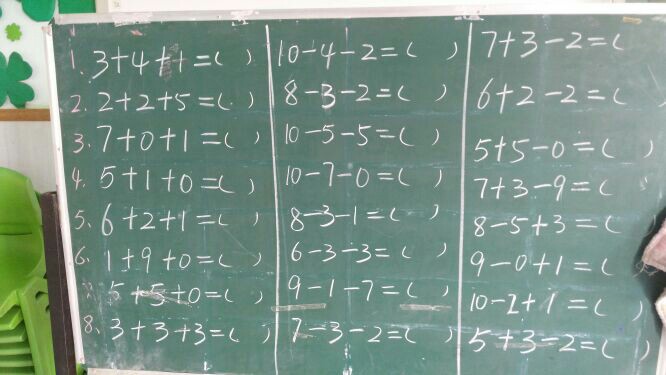 1. 3+4+1=( )
2. 2+2+5=( )
3. 7+0+1=( )
4. 5+1+0=( )
5. 6+2+1=( )
6. 1+9+0=( )
7. 5+5+0=( )
8. 3+3+3=( )
10-4-2=( )
8-3-2=( )
10-5-5=( )
10-7-0=( )
8-3-1=( )
6-3-3=( )
9-1-7=( )
7-3-2=( )
7+3-2=(
6+2-2=( )
5+5-0=( )
7+3-9=( )
8-5+3=( )
9-0+1=( )
10-2+1=( )
5+3-2=( )